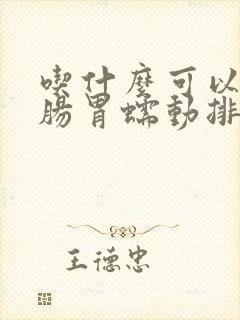 喫什麼可以
腸胃蠕動排
王德忠